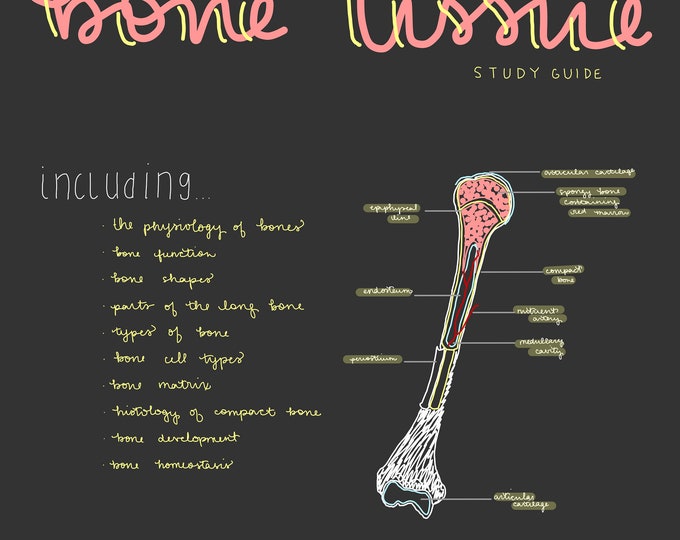 bone tissue
STUDY GUIDE
including...
· the physiology of bones
· bone function
· bone shapes
· parts of the long bone
· types of bone
· bone cell types
· bone matrix
· histology of compact bone
· bone development
· bone homeostasis
articular cartilage
spongy bone
containing
red marrow
epiphyseal
line
compact
bone
endosteum
nutrient
artery
medullary
cavity
periosteum
articular
cartilage